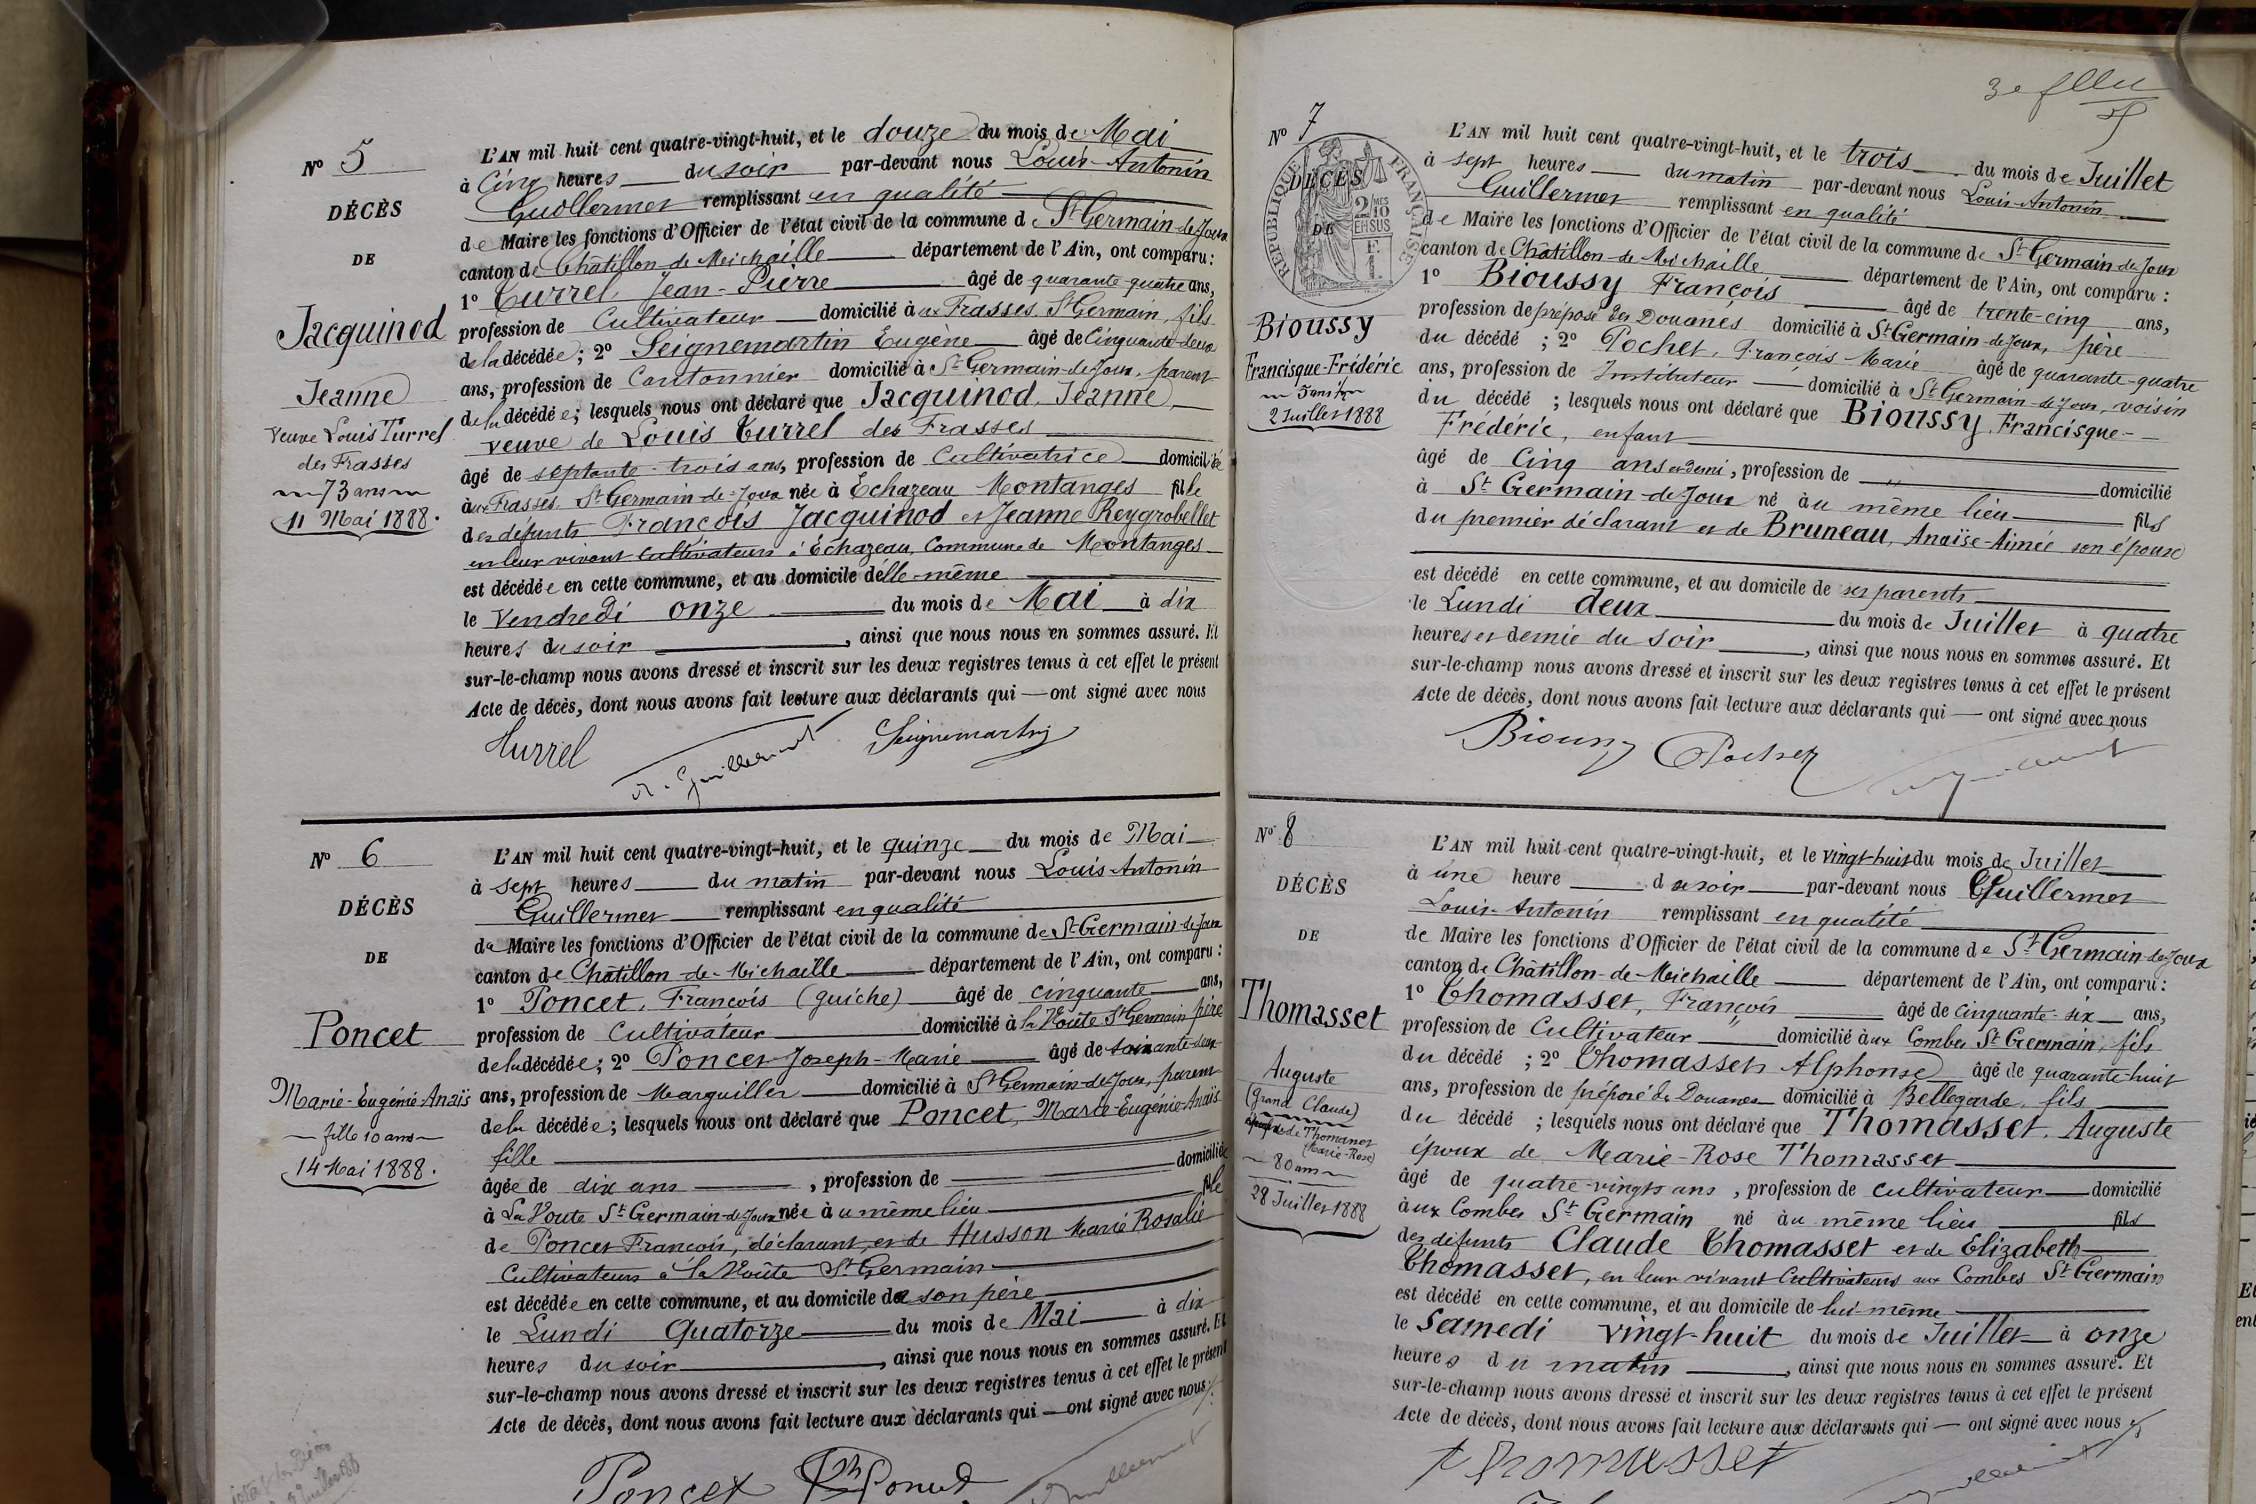 Nº 5
DÉCÈS
DE
Jacquinod
Jeanne
Veuve Louis Turrel
des Frasses
73 ans
11 Mai 1888.
L'AN mil huit cent quatre-vingt-huit, et le douze du mois de Mai
à Cinq heures du soir par-devant nous Louis-Antonin
Guillermet remplissant en qualité
de Maire les fonctions d'Officier de l'état civil de la commune de St Germain-de-Joux
canton de Châtillon-de-Michaille département de l'Ain, ont comparu :
1º Turrel, Jean-Pierre âgé de quarante quatre ans,
profession de Cultivateur domicilié aux Frasses St Germain, fils
de la décédée ; 2º Seignemartin Eugène âgé de Cinquante-deux
ans, profession de Cantonnier domicilié à St Germain-de-Joux, parent
de la décédée ; lesquels nous ont déclaré que Jacquinod, Jeanne
veuve de Louis Turrel des Frasses
âgé de septante-trois ans, profession de Cultivatrice domiciliée
aux Frasses St Germain-de-Joux née à Echazeau Montanges fille
des défunts François Jacquinod et Jeanne Reygrobellet
en leur vivant Cultivateurs à Echazeau, Commune de Montanges
est décédée en cette commune, et au domicile d'elle-même
le Vendredi onze du mois de Mai à dix
heures du soir, ainsi que nous nous en sommes assuré. Et
sur-le-champ nous avons dressé et inscrit sur les deux registres tenus à cet effet le présent
Acte de décès, dont nous avons fait lecture aux déclarants qui — ont signé avec nous
Turrel A. Guillermet Seignemartin
Nº 6
DÉCÈS
DE
Poncet
Marie-Eugénie-Anaïs
fille 10 ans
14 Mai 1888.
L'AN mil huit cent quatre-vingt-huit, et le quinze du mois de Mai
à sept heures du matin par-devant nous Louis-Antonin
Guillermet remplissant en qualité
de Maire les fonctions d'Officier de l'état civil de la commune de St Germain-de-Joux
canton de Châtillon-de-Michaille département de l'Ain, ont comparu :
1º Poncet, François (guiche) âgé de cinquante ans,
profession de Cultivateur domicilié à la Voûte St Germain père
de la décédée ; 2º Poncet Joseph-Marie âgé de soixante-deux
ans, profession de Marguiller domicilié à St Germain-de-Joux, parent
de la décédée ; lesquels nous ont déclaré que Poncet, Marie-Eugénie-Anaïs
fille
âgée de dix ans, profession de domiciliée
à La Voute St Germain-de-Joux née au même lieu fille
de Poncet François, déclarant, et de Husson Marie Rosalie
Cultivateurs à la Voûte St Germain
est décédée en cette commune, et au domicile de son père
le Lundi Quatorze du mois de Mai à dix
heures du soir, ainsi que nous nous en sommes assuré. Et
sur-le-champ nous avons dressé et inscrit sur les deux registres tenus à cet effet le présent
Acte de décès, dont nous avons fait lecture aux déclarants qui — ont signé avec nous
Poncet Poncet Guillermet
3e
Nº 7
RÉPUBLIQUE FRANÇAISE
2 MES 10 EN SUS
F. 1.
DÉCÈS
DE
Bioussy
Francisque-Frédéric
5 ans ½
2 Juillet 1888
L'AN mil huit cent quatre-vingt-huit, et le trois du mois de Juillet
à sept heures du matin par-devant nous Louis-Antonin
Guillermet remplissant en qualité
de Maire les fonctions d'Officier de l'état civil de la commune de St Germain-de-Joux
canton de Châtillon-de-Michaille département de l'Ain, ont comparu :
1º Bioussy François âgé de trente-cinq ans,
profession de préposé des Douanes domicilié à St Germain-de-Joux, père
du décédé ; 2º Pochet, François-Marie âgé de quarante-quatre
ans, profession de Instituteur domicilié à St Germain-de-Joux, voisin
du décédé ; lesquels nous ont déclaré que Bioussy, Francisque-
Frédéric, enfant
âgé de Cinq ans et demi, profession de " domicilié
à St Germain-de-Joux né au même lieu fils
du premier déclarant et de Bruneau, Anaïse-Aimée son épouse
est décédé en cette commune, et au domicile de ses parents
le Lundi deux du mois de Juillet à quatre
heures et demie du soir, ainsi que nous nous en sommes assuré. Et
sur-le-champ nous avons dressé et inscrit sur les deux registres tenus à cet effet le présent
Acte de décès, dont nous avons fait lecture aux déclarants qui — ont signé avec nous
Bioussy Pochet Guillermet
Nº 8
DÉCÈS
DE
Thomasset
Auguste
(Grand Claude)
époux de Thomasset
(Marie-Rose)
80 ans
28 Juillet 1888
L'AN mil huit cent quatre-vingt-huit, et le vingt-huit du mois de Juillet
à une heure du soir par-devant nous Guillermet
Louis-Antonin remplissant en qualité
de Maire les fonctions d'Officier de l'état civil de la commune de St Germain-de-Joux
canton de Châtillon-de-Michaille département de l'Ain, ont comparu :
1º Thomasset, François âgé de cinquante-six ans,
profession de Cultivateur domicilié aux Combes St Germain, fils
du décédé ; 2º Thomasset Alphonse âgé de quarante-huit
ans, profession de préposé des Douanes domicilié à Bellegarde, fils
du décédé ; lesquels nous ont déclaré que Thomasset, Auguste
époux de Marie-Rose Thomasset
âgé de quatre-vingts ans, profession de cultivateur domicilié
aux Combes St Germain né au même lieu fils
des défunts Claude Thomasset et de Elizabeth
Thomasset, en leur vivant Cultivateurs aux Combes St Germain
est décédé en cette commune, et au domicile de lui-même
le Samedi vingt-huit du mois de Juillet à onze
heures du matin, ainsi que nous nous en sommes assuré. Et
sur-le-champ nous avons dressé et inscrit sur les deux registres tenus à cet effet le présent
Acte de décès, dont nous avons fait lecture aux déclarants qui — ont signé avec nous
Thomasset Guillermet